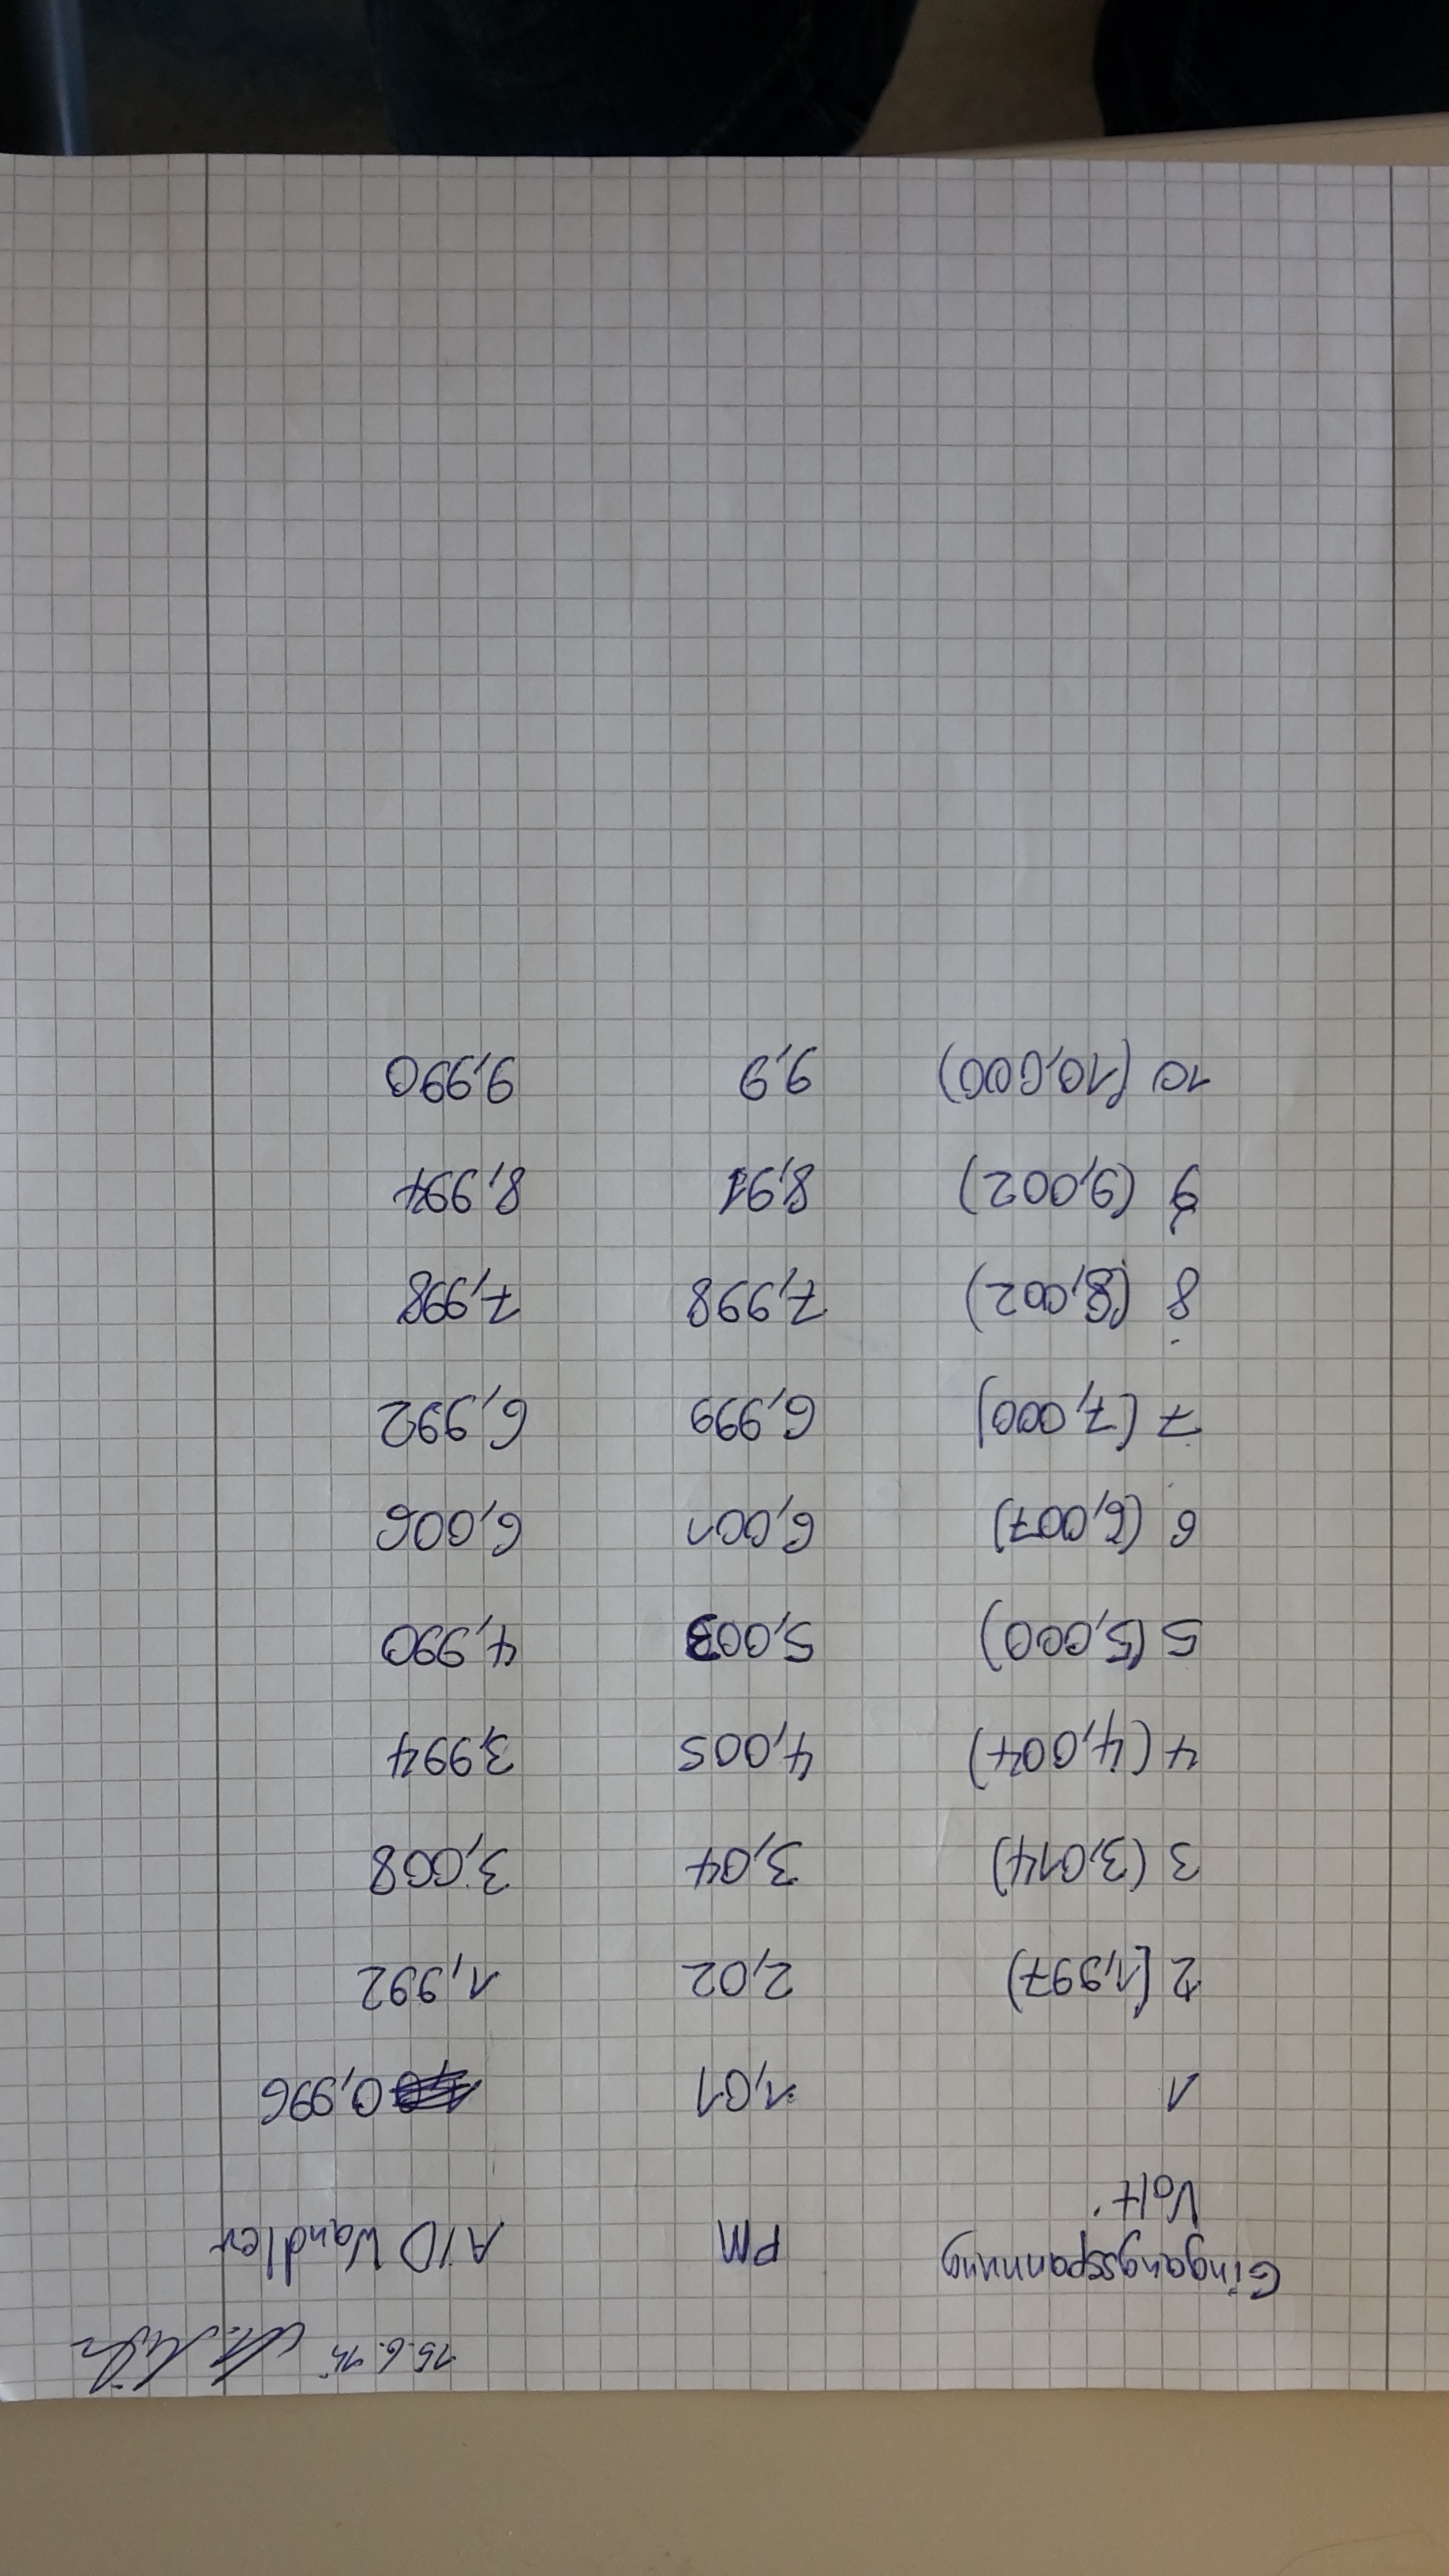 15.6.15
Eingangsspannung PM A/D Wandler
Volt
1 1,01 0,996
2 (1,997) 2,02 1,992
3 (3,014) 3,04 3,008
4 (4,004) 4,005 3,994
5 (5,000) 5,003 4,990
6 (6,007) 6,001 6,006
7 (7,000) 6,999 6,992
8 (8,002) 7,998 7,998
9 (9,002) 8,91 8,994
10 (10,000) 9,9 9,990